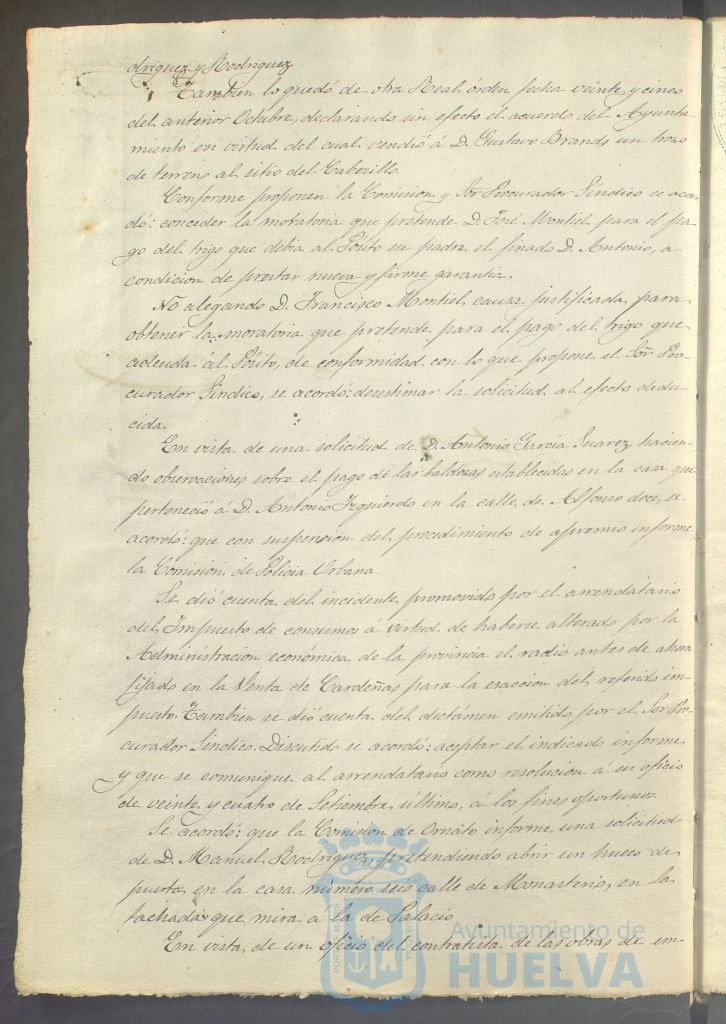 driguez y Rodriguez
Tambien lo quedó de otra Real órden fecha veinte y cinco
del anterior Octubre, declarando sin efecto el acuerdo del Ayunta-
miento en virtud del cual vendió á D. Gustavo Brands un trozo
de terreno al sitio del Cabezillo.
Conforme proponen la Comision y Sor. Procurador Síndico se acor-
dó: conceder la moratoria que pretende D. José Montiel para el pa-
go del trigo que debia al Pósito su padre el finado D. Antonio, a
condicion de prestar nueva y firme garantia.
No alegando D. Francisco Montiel causa justificada para
obtener la moratoria que pretende para el pago del trigo que
adeuda al Pósito, de conformidad con lo que propone el Sor. Pro-
curador Síndico, se acordó: desestimar la solicitud al efecto dedu-
cida.
En vista de una solicitud de D. Antonio Garcia Suarez, hacien-
do observaciones sobre el pago de las baldosas establecidas en la casa que
perteneció á D. Antonio Izquierdo en la calle de Alfonso doce, se
acordó: que con suspencion del procedimiento de apremio informe
la Comision de Policia Urbana.
Se dió cuenta del incidente promovido por el arrendatario
del Impuesto de consumos á virtud de haberse alterado por la
Administracion económica de la provincia el radio antes de ahora
fijado en la Venta de Cardeñas para la esaccion del referido im-
puesto. Tambien se dió cuenta del dictámen emitido por el Sor. Pro-
curador Síndico. Discutido se acordó: aceptar el indicado informe
y que se comunique al arrendatario como resolucion á su oficio
de veinte y cuatro de Setiembre último, á los fines oportunos.
Se acordó: que la Comision de Ornáto informe una solicitud
de D. Manuel Rodriguez, pretendiendo abrir un hueco de
puerta en la casa número seis calle de Monasterio, en la
fachada que mira á la de Palacio
En vista de un oficio del contratista de las obras de em-
Ayuntamiento de
HUELVA